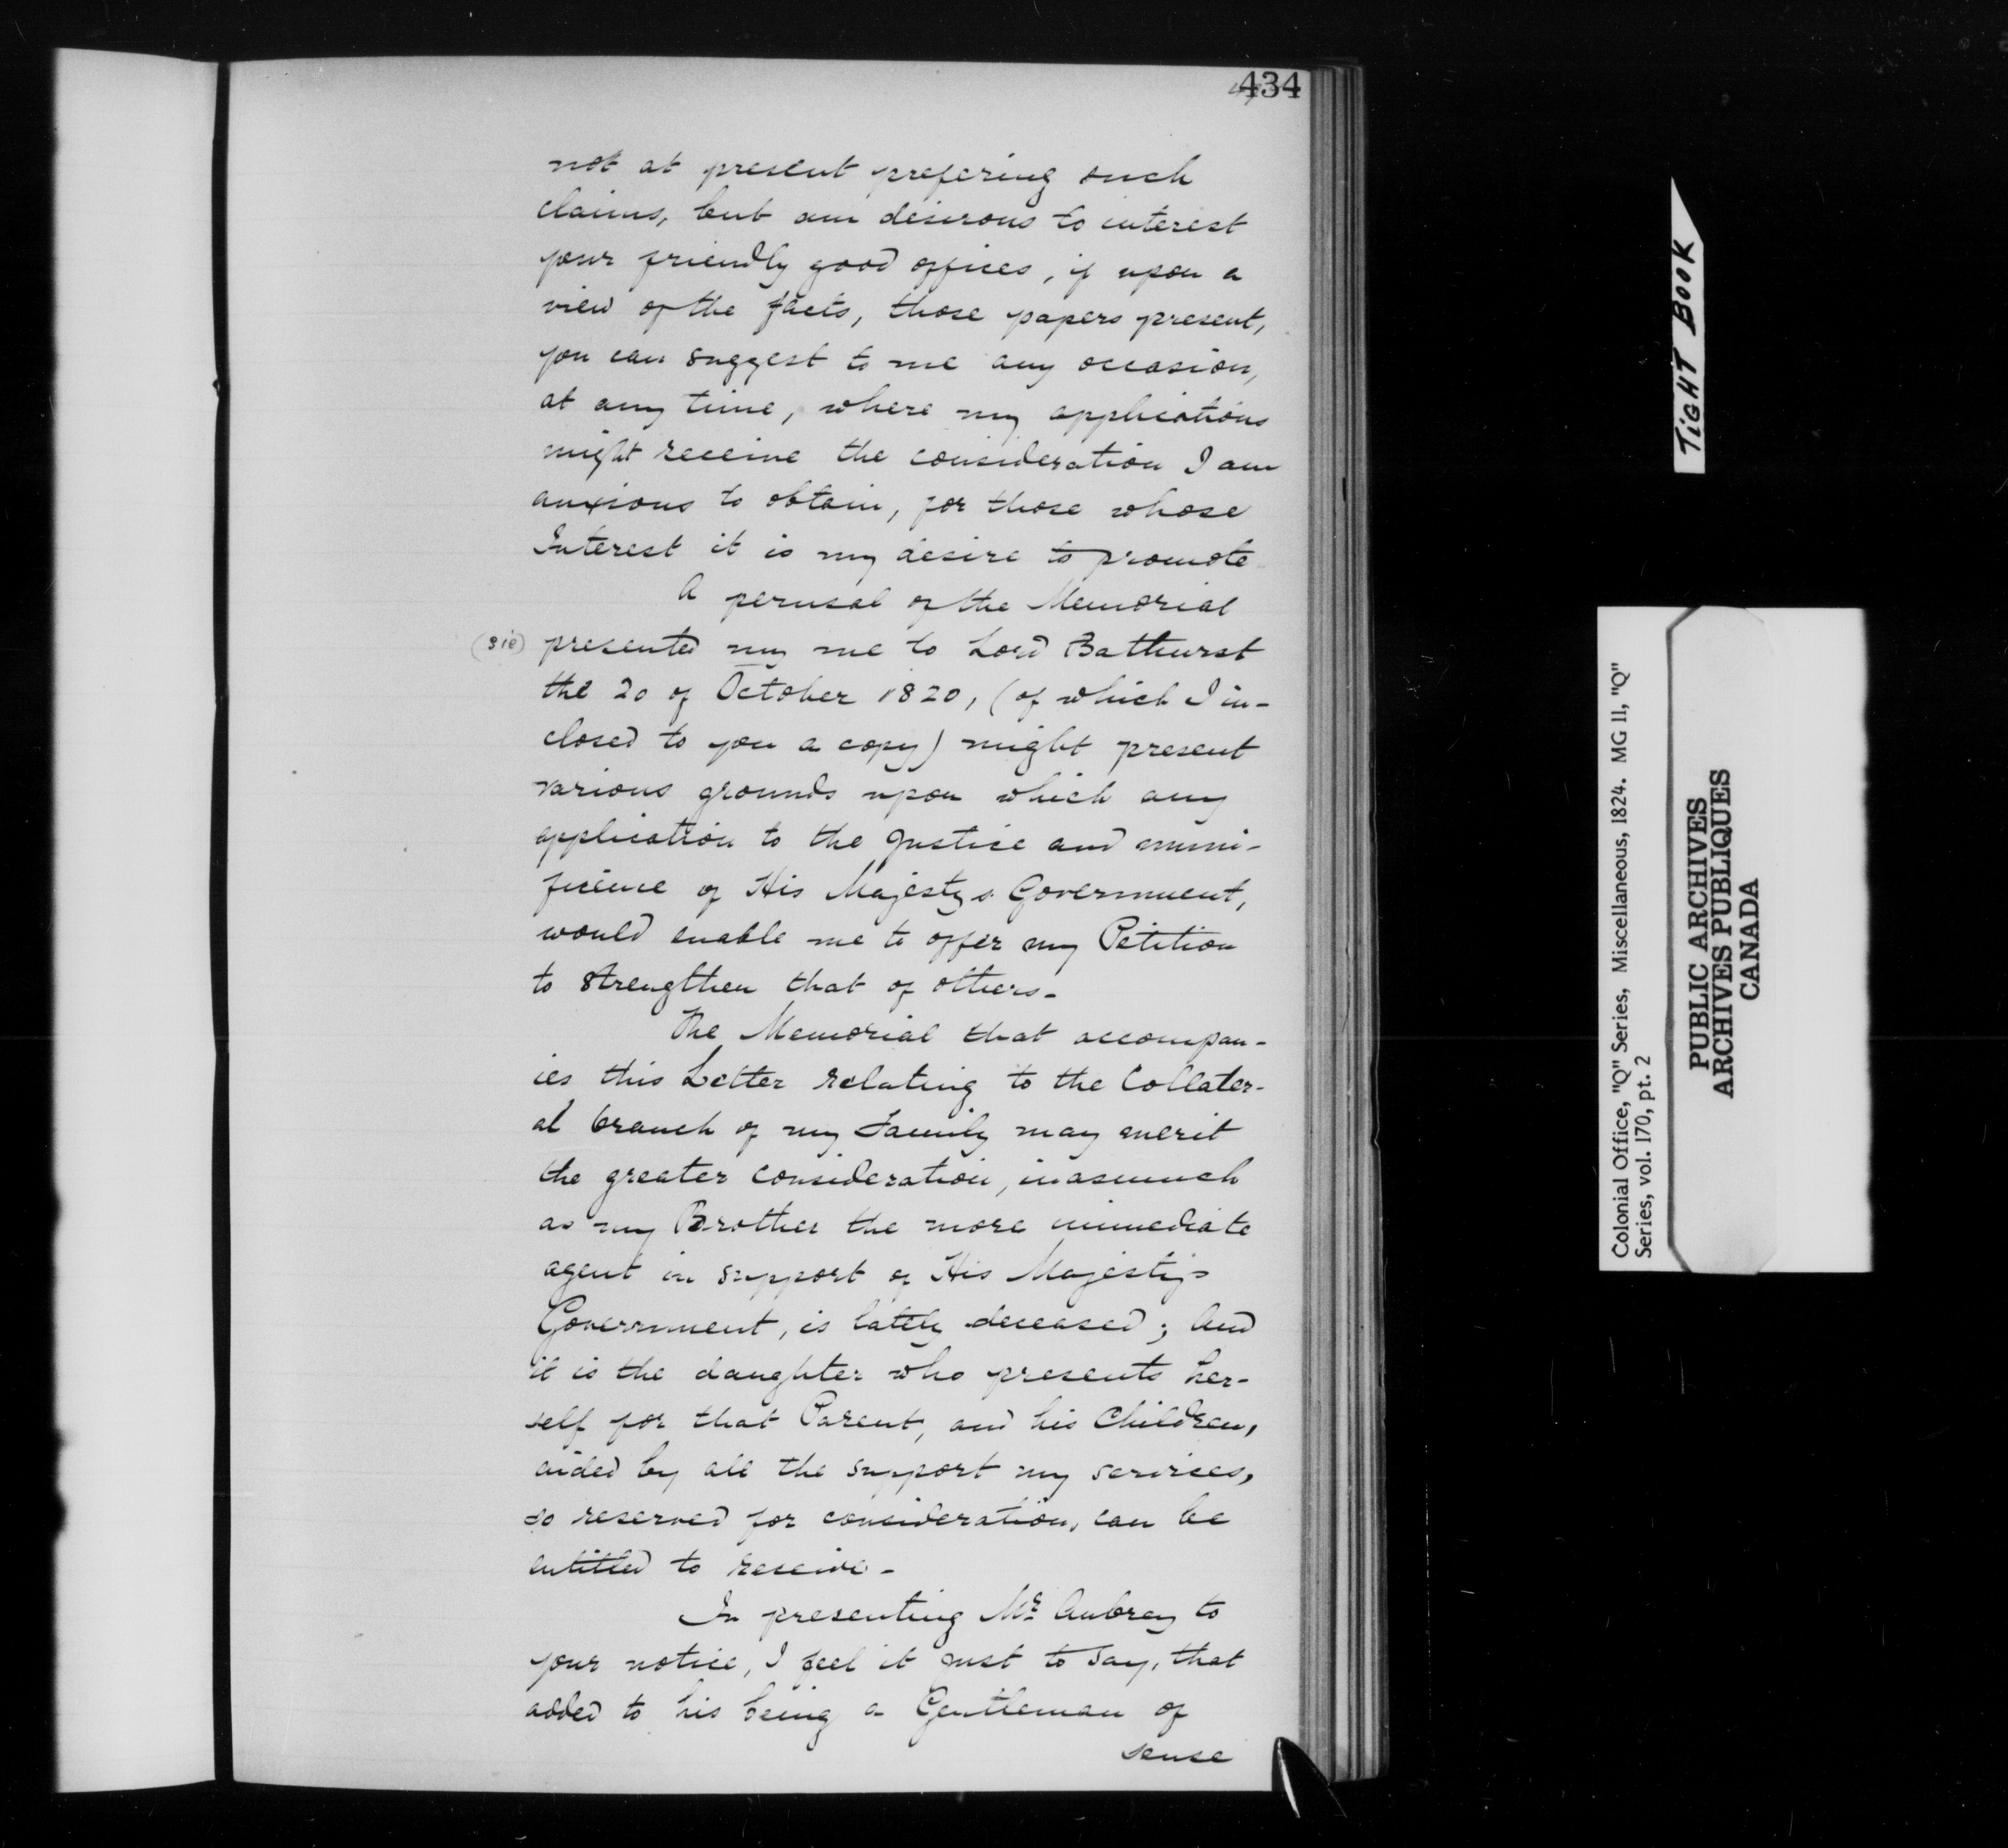 434
not at present prefering such
claims, but am desirous to interest
your friendly good offices, if upon a
view of the facts, those papers present,
you can suggest to me any occasion,
at any time, where my applications
might receive the consideration I am
anxious to obtain, for those whose
Interest it is my desire to promote
A perusal of the Memorial
(sic) presented my me to Lord Bathurst
the 20 of October 1820, (of which I in-
closed to you a copy) might present
various grounds upon which any
application to the Justice and muni-
ficience of His Majestys Government,
would enable me to offer my Petition
to strengthen that of others-
The Memorial that accompan-
ies this Letter relating to the Collater-
al branch of my Family may merit
the greater consideration, inasmuch
as my Brother the more immediate
agent in support of His Majestys
Government, is lately deceased; And
it is the daughter who presents her-
self for that Parent, and his Children,
aided by all the support my services,
so reserved for consideration, can be
entitled to receive-
In presenting Mr. Aubrey to
your notice, I feel it just to say, that
added to his being a Gentleman of
sense
TIGHT BOOK
Colonial Office, "Q" Series, Miscellaneous, 1824. MG 11, "Q"
Series, vol. 170, pt. 2
PUBLIC ARCHIVES
ARCHIVES PUBLIQUES
CANADA